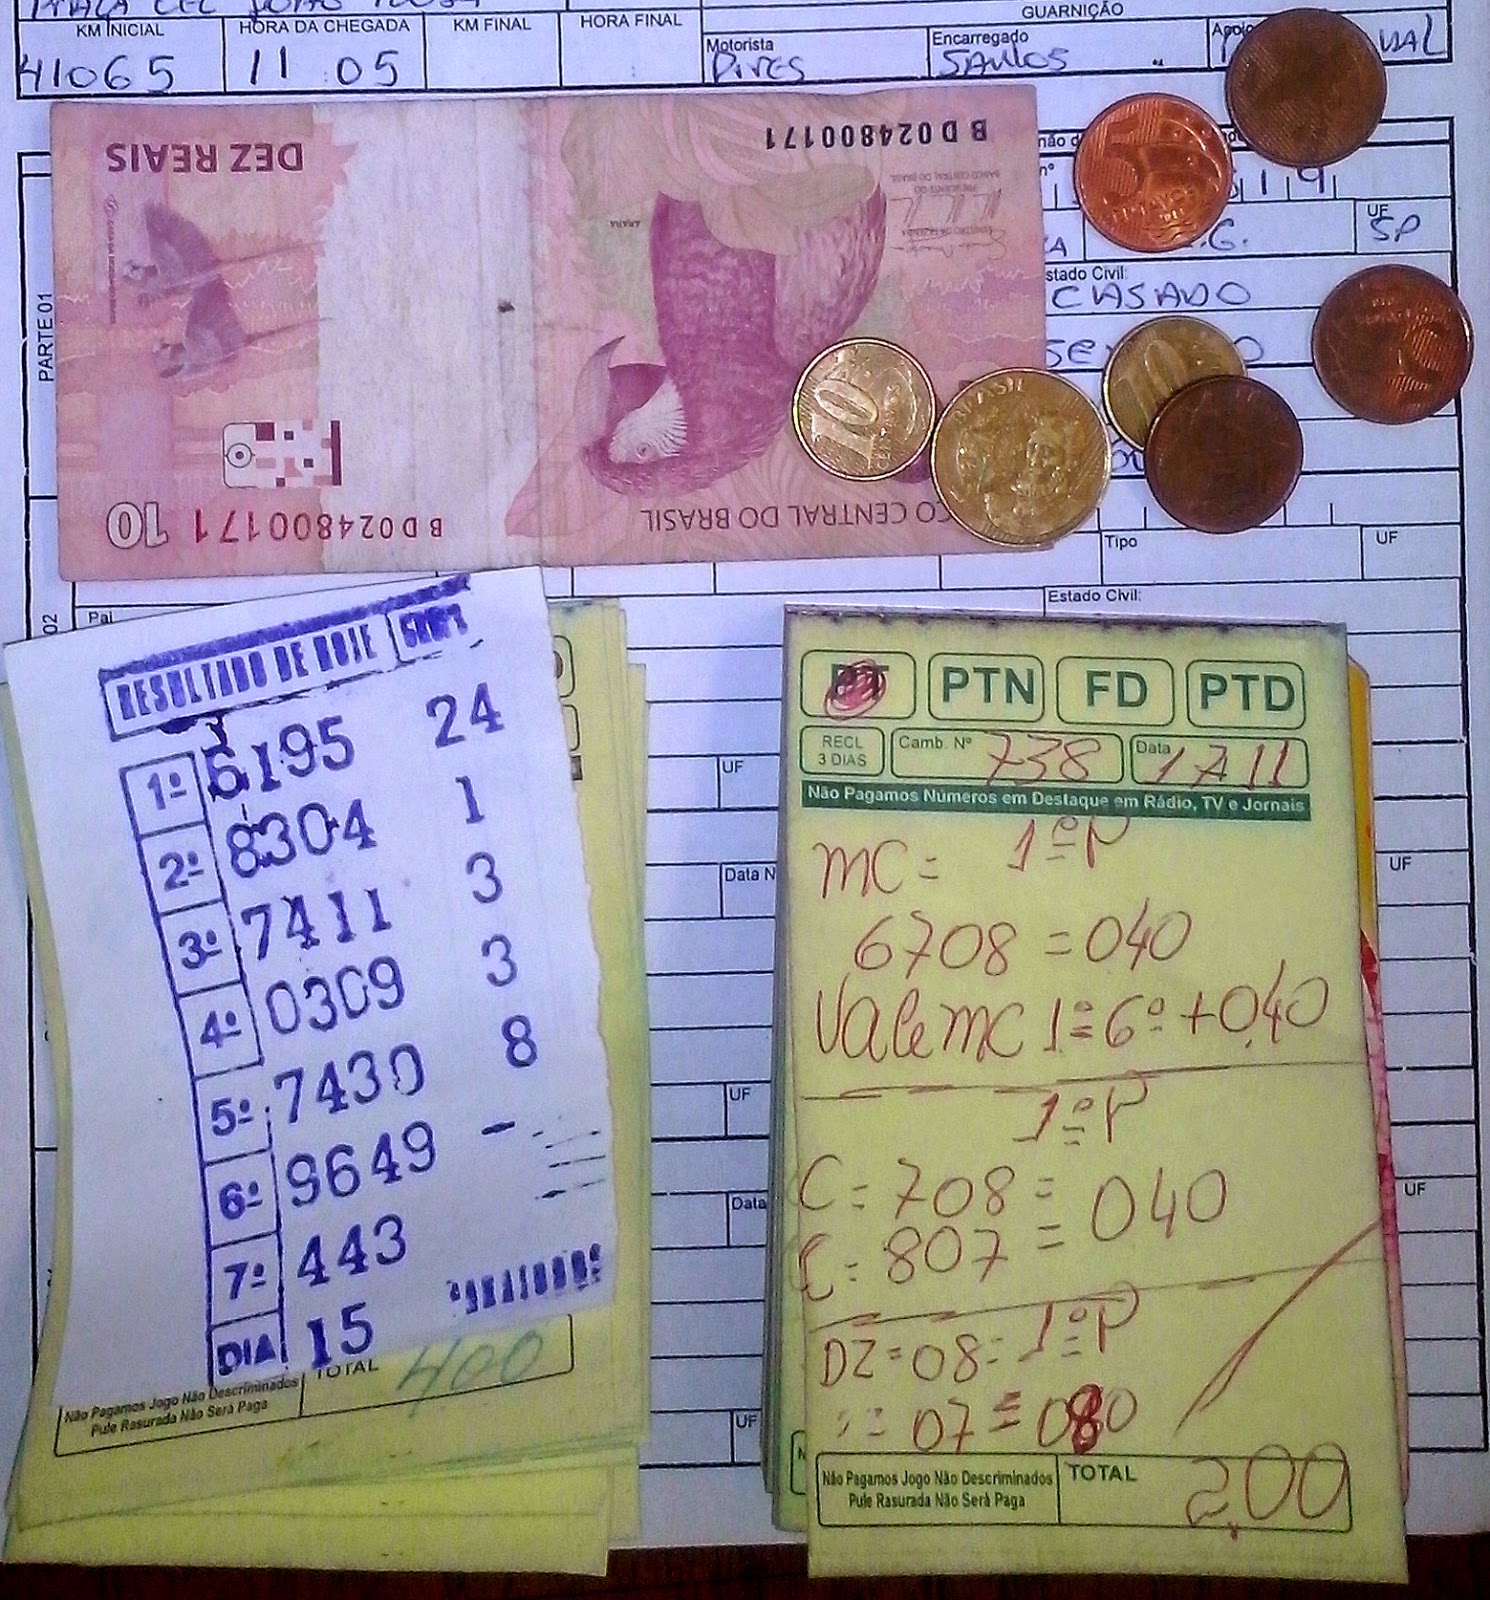 KM INICIAL
HORA DA CHEGADA
KM FINAL
HORA FINAL
GUARNIÇÃO
41065
11 05
Motorista
Pires
Encarregado
Santos
UF
SP
PARTE 01
stado Civil:
CASADO
DEZ REAIS
BD024800171
PRESIDENTE DO
BANCO CENTRAL DO BRASIL
MINISTRO DA FAZENDA
ARARA
5
10
10
BRASIL
CO CENTRAL DO BRASIL
BD024800171
10
Tipo
UF
02
Pai
Estado Civil:
RESULTADO DE HOJE
1º 6195 24
2º 8304 1
3º 7411 3
4º 0309 3
5º 7430 8
6º 9649 -
7º 443
DIA 15
TOTAL
400
Não Pagamos Jogo Não Descriminados
Pule Rasurada Não Será Paga
UF
Data N
UF
Data
UF
UF
UF
PT PTN FD PTD
RECL
3 DIAS
Camb. Nº 738
Data 17 11
Não Pagamos Números em Destaque em Rádio, TV e Jornais
MC = 1ºP
6708 = 040
Vale MC 1º=6º +0,40
1ºP
C = 708 = 040
C = 807 =
DZ = 08 = 1ºP
= 07 = 080
Não Pagamos Jogo Não Descriminados
Pule Rasurada Não Será Paga
TOTAL
2,00